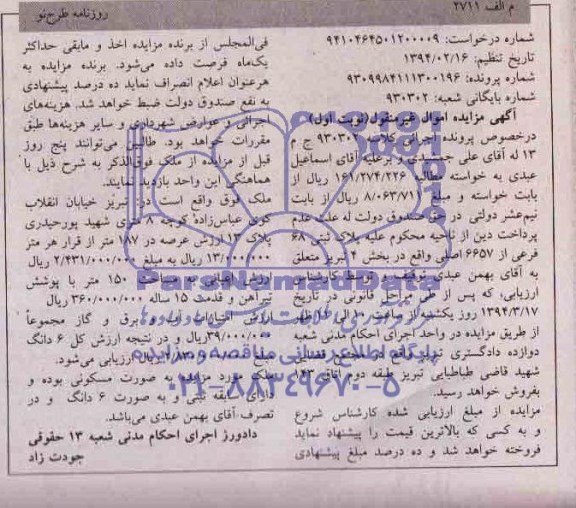 م الف ۲۷۱۱
روزنامه طرح‌نو
شماره درخواست: ۹۴۱۰۴۶۴۵۰۱۲۰۰۰۰۹
تاریخ تنظیم: ۱۳۹۴/۰۲/۱۶
شماره پرونده: ۹۳۰۹۹۸۴۱۱۱۳۰۰۱۹۶
شماره بایگانی شعبه: ۹۳۰۳۰۲
آگهی مزایده اموال غیرمنقول(نوبت اول)
درخصوص پرونده اجرایی کلاسه ۹۳۰۳۰۲ ج م
۱۳ له آقای علی جمشیدی و برعلیه آقای اسماعیل
عبدی به خواسته مطالبه ۱۶۱/۲۷۴/۲۲۶ ریال از
بابت خواسته و مبلغ ۸/۰۶۳/۷۱۱ ریال از بابت
نیم‌عشر دولتی در حق صندوق دولت له علت عدم
پرداخت دین از ناحیه محکوم علیه پلاک ثبتی ۶۸
فرعی از ۶۶۵۷ اصلی واقع در بخش ۴ تبریز متعلق
به آقای بهمن عبدی توقیف و توسط کارشناس
ارزیابی، که پس از طی مراحل قانونی در تاریخ
۱۳۹۴/۳/۱۷ روز یکشنبه از ساعت ۱۰ الی ۱۲ ظهر
از طریق مزایده در واحد اجرای احکام مدنی شعبه
دوازده دادگستری تبریز واقع در مجتمع قضایی
شهید قاضی طباطبایی تبریز طبقه دوم اتاق ۱۴۳
بفروش خواهد رسید.
مزایده از مبلغ ارزیابی شده کارشناس شروع
و به کسی که بالاترین قیمت را پیشنهاد نماید
فروخته خواهد شد و ده درصد مبلغ پیشنهادی
فی‌المجلس از برنده مزایده اخذ و مابقی حداکثر
یک‌ماه فرصت داده می‌شود. برنده مزایده به
هرعنوان اعلام انصراف نماید ده درصد پیشنهادی
به نفع صندوق دولت ضبط خواهد شد. هزینه‌های
اجرائی و عوارض شهرداری و سایر هزینه‌ها طبق
مقررات خواهد بود. طالبین می‌توانند پنج روز
قبل از مزایده از ملک فوق‌الذکر به شرح ذیل با
هماهنگی این واحد بازدید نمایند.
ملک فوق واقع است در: تبریز خیابان انقلاب
کوی عباس‌زاده کوچه ۸ متری شهید پورحیدری
پلاک ۱۳ ارزش عرصه در ۱۸۷ متر از قرار هر متر
۱۳/۰۰۰/۰۰۰ ریال به مبلغ ۲/۴۳۱/۰۰۰/۰۰۰ ریال
ارزش اعیانی به مساحت ۱۵۰ متر با پوشش
تیرآهن و قدمت ۱۵ ساله ۳۶۰/۰۰۰/۰۰۰ ریال
ارزش امتیازات آب و برق و گاز مجموعاً
۳۹/۰۰۰/۰۰۰ ریال و در نتیجه ارزش کل ۶ دانگ
مبلغ ریال ارزیابی می‌شود.
ملک مورد مزایده به صورت مسکونی بوده و
دارای سابقه ثبتی و به صورت ۶ دانگ و در
تصرف آقای بهمن عبدی می‌باشد.
دادورز اجرای احکام مدنی شعبه ۱۳ حقوقی
جودت زاد
ParsNamadData
پایگاه اطلاع رسانی مناقصه و مزایده
۰۲۱-۸۸۳۴۹۶۷۰-۵